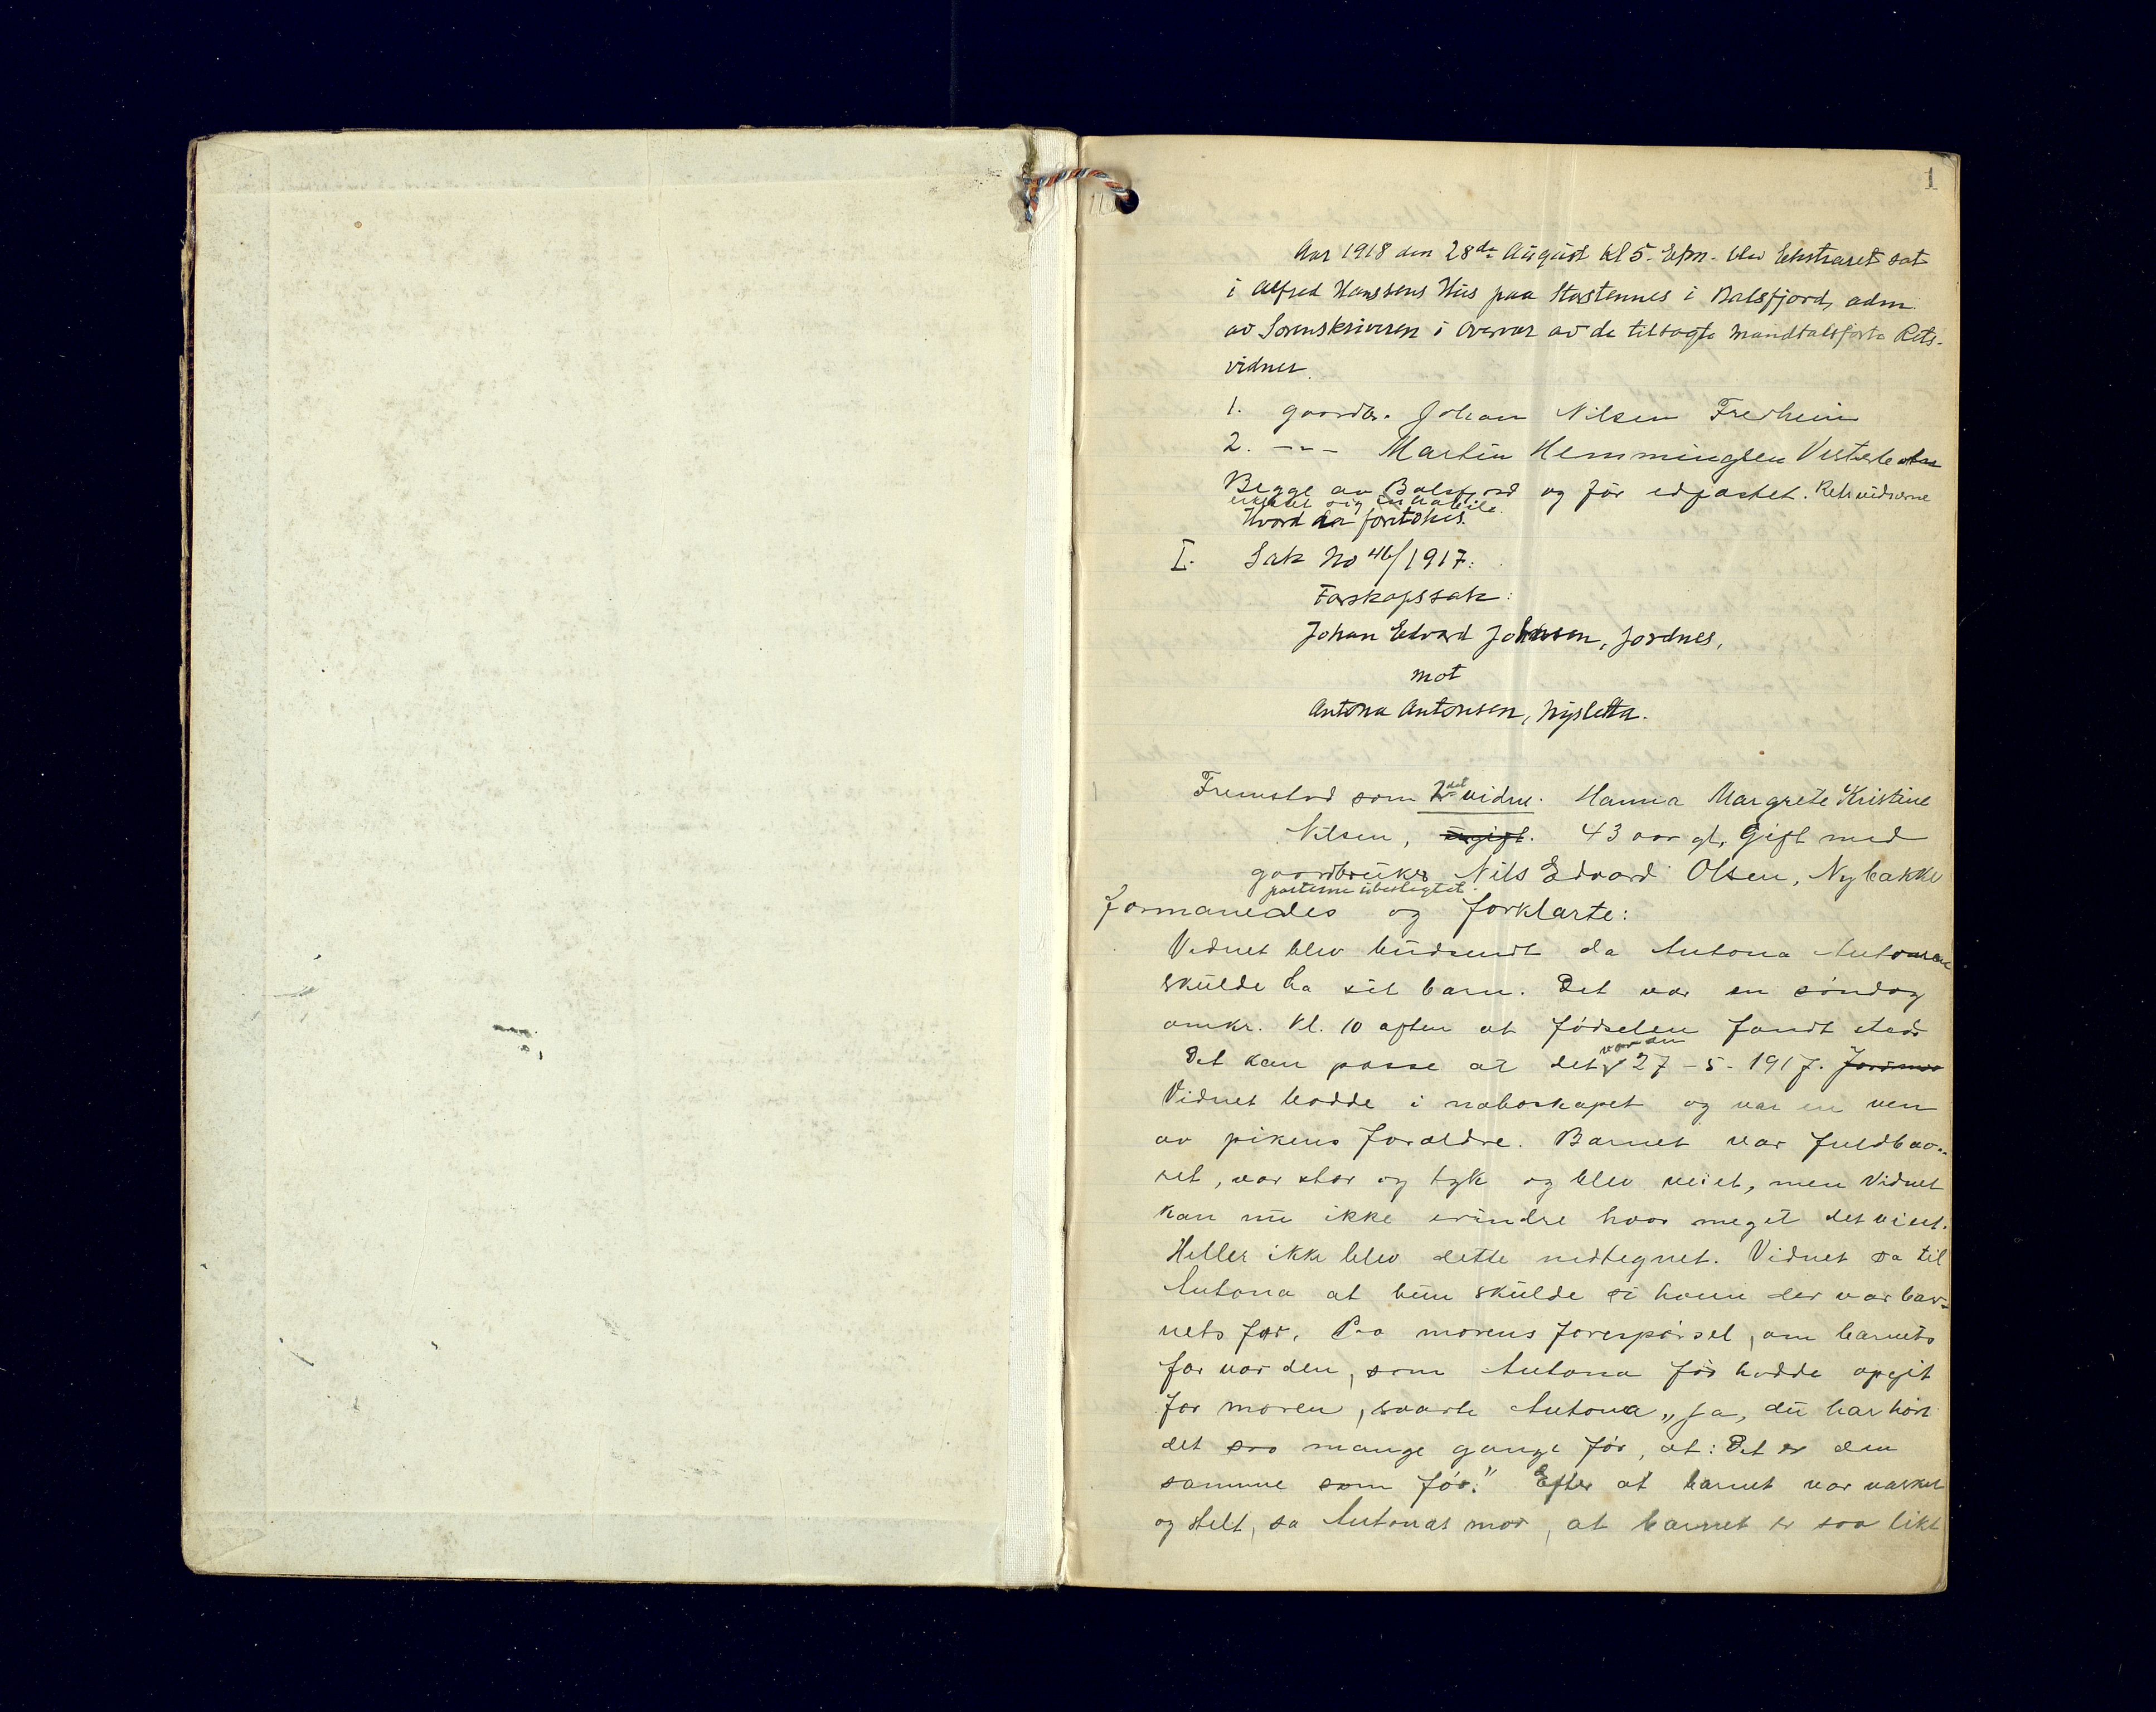 1
Aar 1918 den 28de August kl 5 Efm. blev Ekstraret sat
i Alfred Hanssens Hus paa Storstennes i Balsfjord, adm.
av Sorenskriveren i Overvær av de tilsagte mandtalsførte Rets-
vidner.
1. gaardbr. Johan Nilsen Fredheim
2. -"- Martin Hemmingsen
Begge av Balsfjord og før edfæstet. Retsvidnerne
erklæret sig habile.
Hvorda foretokes.
I. Sak No 46/1917:
Farskapssak:
Johan Edvard Johnsen, Jordnes,
mot
Antona Antonsen, Nysletta.
Fremstod som 2det vidne. Hanna Margrete Kristine
Nilsen, ugift. 43 aar gl, Gift med
gaardbruker Nils Edvard Olsen, Nybakke
partene ubeslegtet.
formanedes og forklarte:
Vidnet blev budsendt da Antona Antonsen
skulde ha sit barn. Det var en søndag
omkr. kl. 10 aften at fødselen fandt sted
Det kan passe at det var den 27-5-1917.
Vidnet bodde i naboskapet og var en ven
av pikens forældre. Barnet var fuldbaa-
ret, var stor og tyk og blev veiet, men vidnet
kan nu ikke erindre hvor meget det veiet.
Heller ikke blev dette nedtegnet. Vidnet sa til
Antona at hun skulde si hvem der var bar-
nets far. Paa morens forespørsel, om barnets
far var den, som Antona før hadde opgit
for moren, svarte Antona „Ja, du har hørt
det saa mange gange før, at: Det er den
samme som før." Efter at barnet var vasket
og stelt, sa Antonas mor, at barnet er saa likt